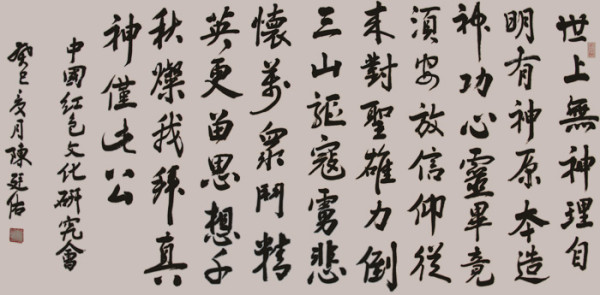 世上無神理自
明有神原本造
神功心靈畢竟
須安放信仰從
来對聖雄力倒
三山驅寇虜悲
懷萬眾鬥精
英更留思想千
秋燦我拜真
神僅此公
中國紅色文化研究會
癸巳夏月陳廷佑